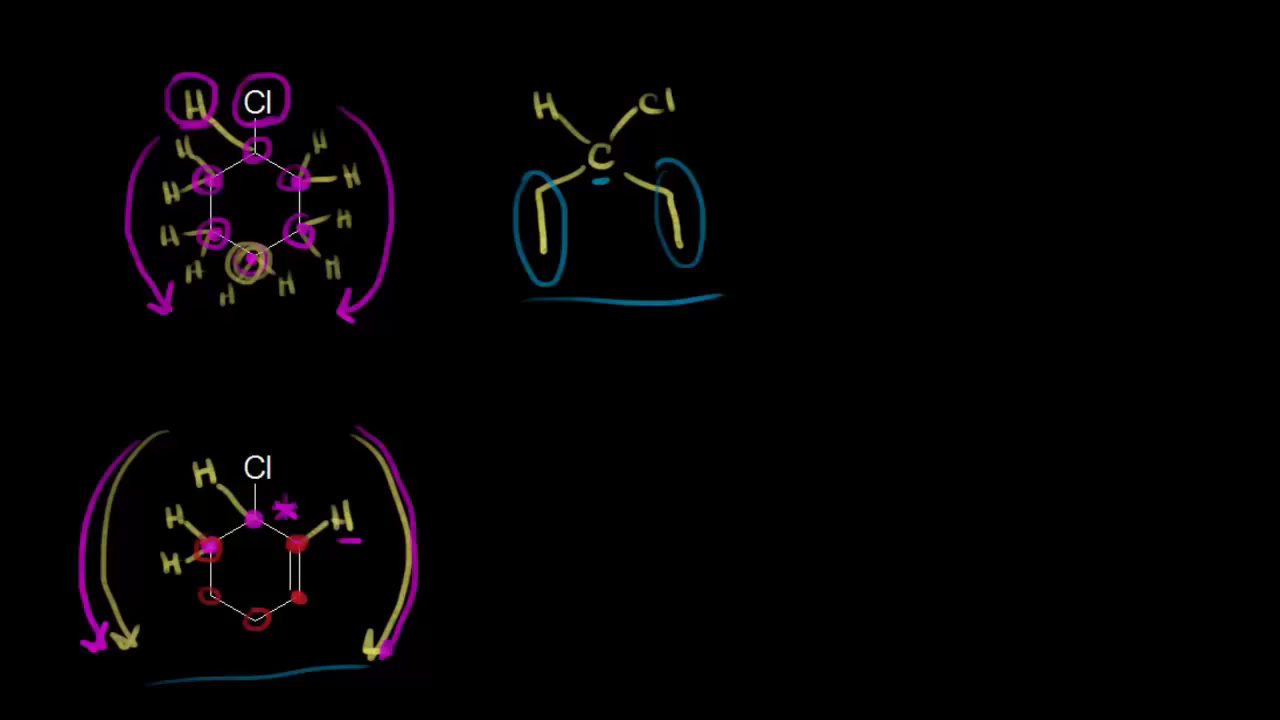 H Cl
H H
H H
H H
H H
H H
H Cl
C
Cl
H
*
H H
H